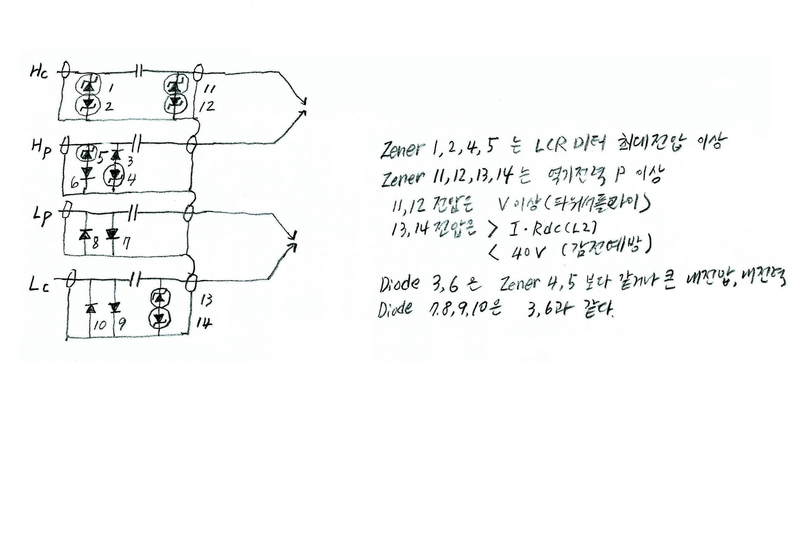 Hc
1
2
11
12
Hp
5
3
6
4
Lp
8
7
Lc
10
9
13
14
Zener 1,2,4,5 는 LCR 미터 최대전압 이상
Zener 11,12,13,14는 역기전력 P 이상
11,12 전압은 V 이상(파워서플라이)
13,14 전압은 > I·Rdc(L2)
< 40V (감전예방)
Diode 3,6 은 Zener 4,5 보다 같거나 큰 내전압, 내전력
Diode 7,8,9,10은 3,6과 같다.